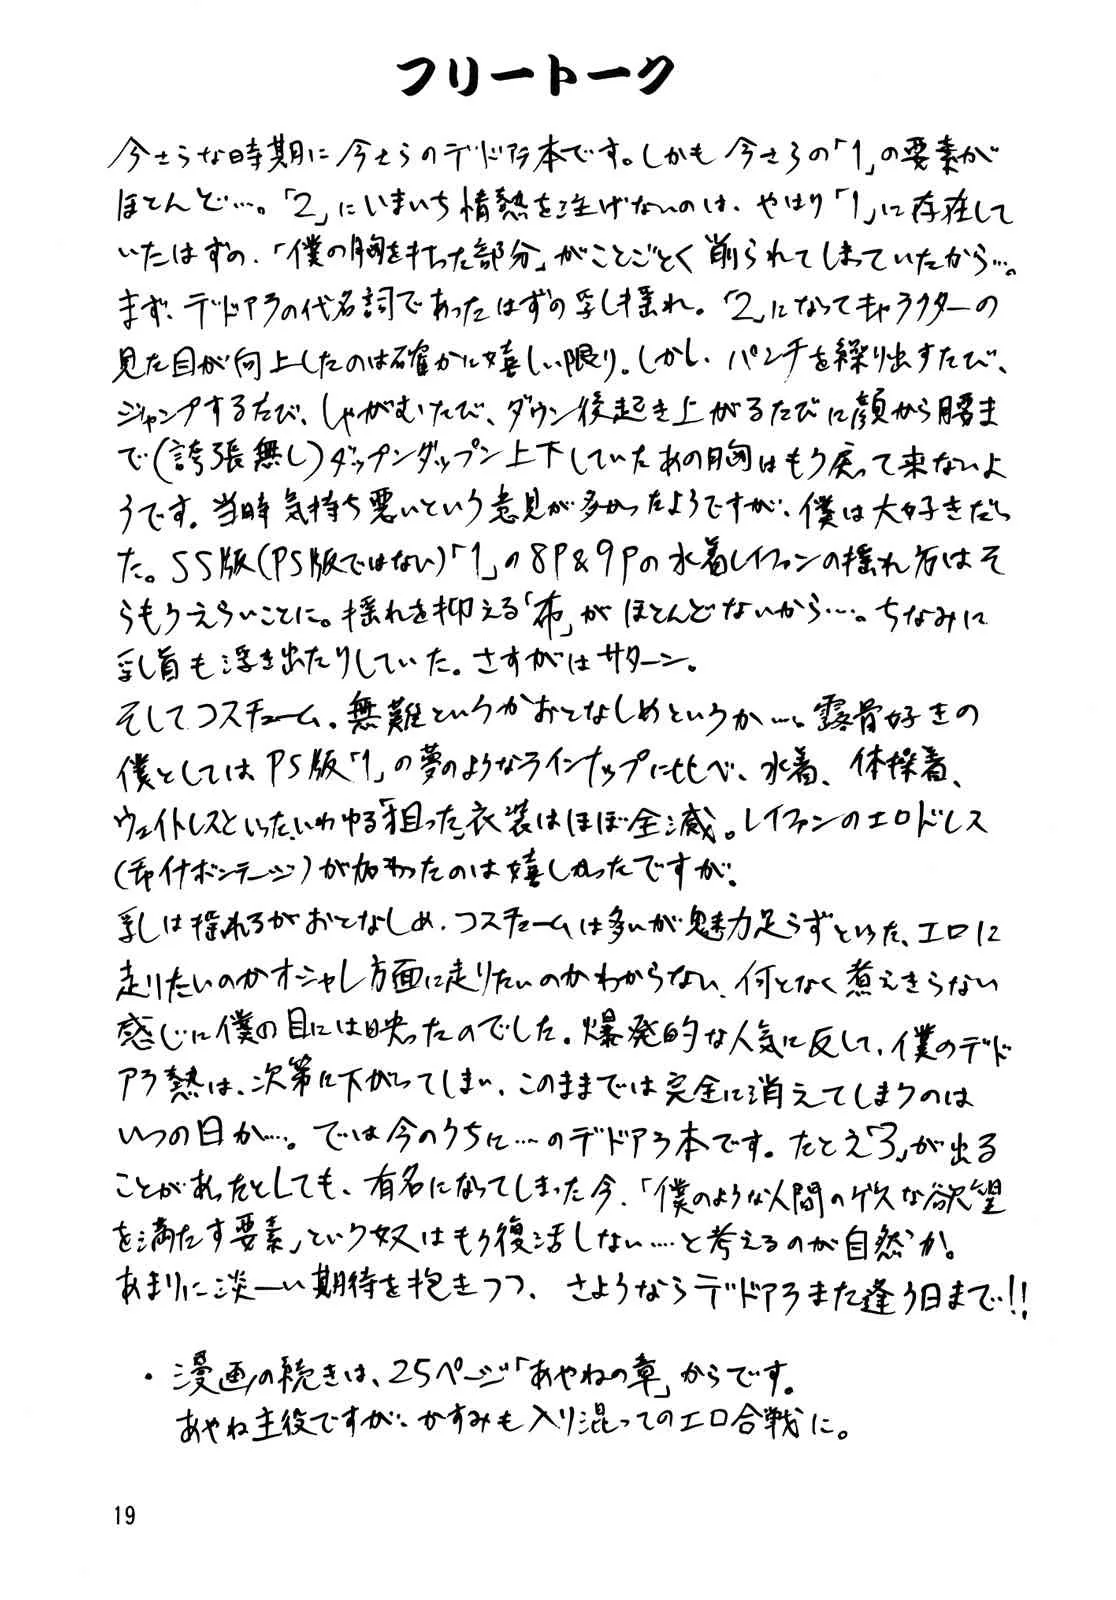 フリートーク
今さらな時期に今さらのデドアラ本です。しかも今さらの「1」の要素が
ほとんど…。「2」にいまいち情熱を注げないのは、やはり「1」に存在して
いたはずの、「僕の胸を打った部分」がことごとく削られてしまっていたから…。
まず、デドアラの代名詞であったはずの乳揺れ。「2」になってキャラクターの
見た目が向上したのは確かに嬉しい限り。しかし、パンチを繰り出すたび、
ジャンプするたび、しゃがむたび、ダウン後起き上がるたびに顔から腰ま
で(誇張無し)ダップンダップン上下していたあの胸はもう戻って来ないよ
うです。当時気持ち悪いという意見が多かったようですが、僕は大好きだっ
た。SS版(PS版ではない)「1」の8P&9Pの水着レイファンの揺れ方はそ
らもうえらいことに。揺れを抑える「布」がほとんどないから…。ちなみに
乳首も浮き出たりしていた。さすがはサターン。
そしてコスチューム。無難というかおとなしめというか…。露骨好きの
僕としてはPS版「1」の夢のようなラインナップに比べ、水着、体操着、
ウェイトレスといった、いわゆる「狙った」衣装はほぼ全滅。レイファンのエロドレス
(ボンテージ)が加わったのは嬉しかったですが。
乳は揺れるがおとなしめ、コスチュームは多いが魅力足らずといった、エロに
走りたいのかオシャレ方面に走りたいのかわからない、何となく煮えきらない
感じに僕の目には映ったのでした。爆発的な人気に反して、僕のデド
アラ熱は、次第に下がってしまい、このままでは完全に消えてしまうのは
いつの日か…。では今のうちに…のデドアラ本です。たとえ「3」が出る
ことがあったとしても、有名になってしまった今、「僕のような人間のゲスな欲望
を満たす要素」という奴はもう復活しない…と考えるのが自然か。
あまりに淡ーい期待を抱きつつ、さようならデドアラまた逢う日まで!!
・漫画の続きは、25ページ「あやねの章」からです。
あやね主役ですが、かすみも入り混ってのエロ合戦に。
19